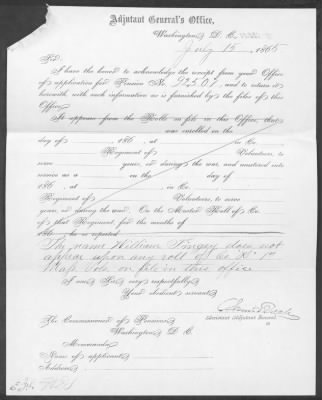 Adjutant General's Office,
Washington, D. C.,
July 15, 1865
Sir:
I have the honor to acknowledge the receipt from your Office
of application for Pension No. 92501, and to return it
herewith, with such information as is furnished by the files of this
Office.
It appears from the Rolls on file in this Office, that
was enrolled on the
day of , 186 , at in Co.
Regiment of Volunteers, to
serve years, or during the war, and mustered into
service as a on the day of
186 , at , in Co.
Regiment of Volunteers, to serve
years, or during the war. On the Muster Roll of Co.
of that Regiment for the months of
186 , he is reported
The name William Timsey does not
appear upon any roll of Co. "D" 1st
Mass. Vols. on file in this office
I am, Sir, very respectfully,
Your obedient servant,
Assistant Adjutant General.
The Commissioner of Pensions,
Washington, D. C.
Memoranda:
Name of applicant,
Address,